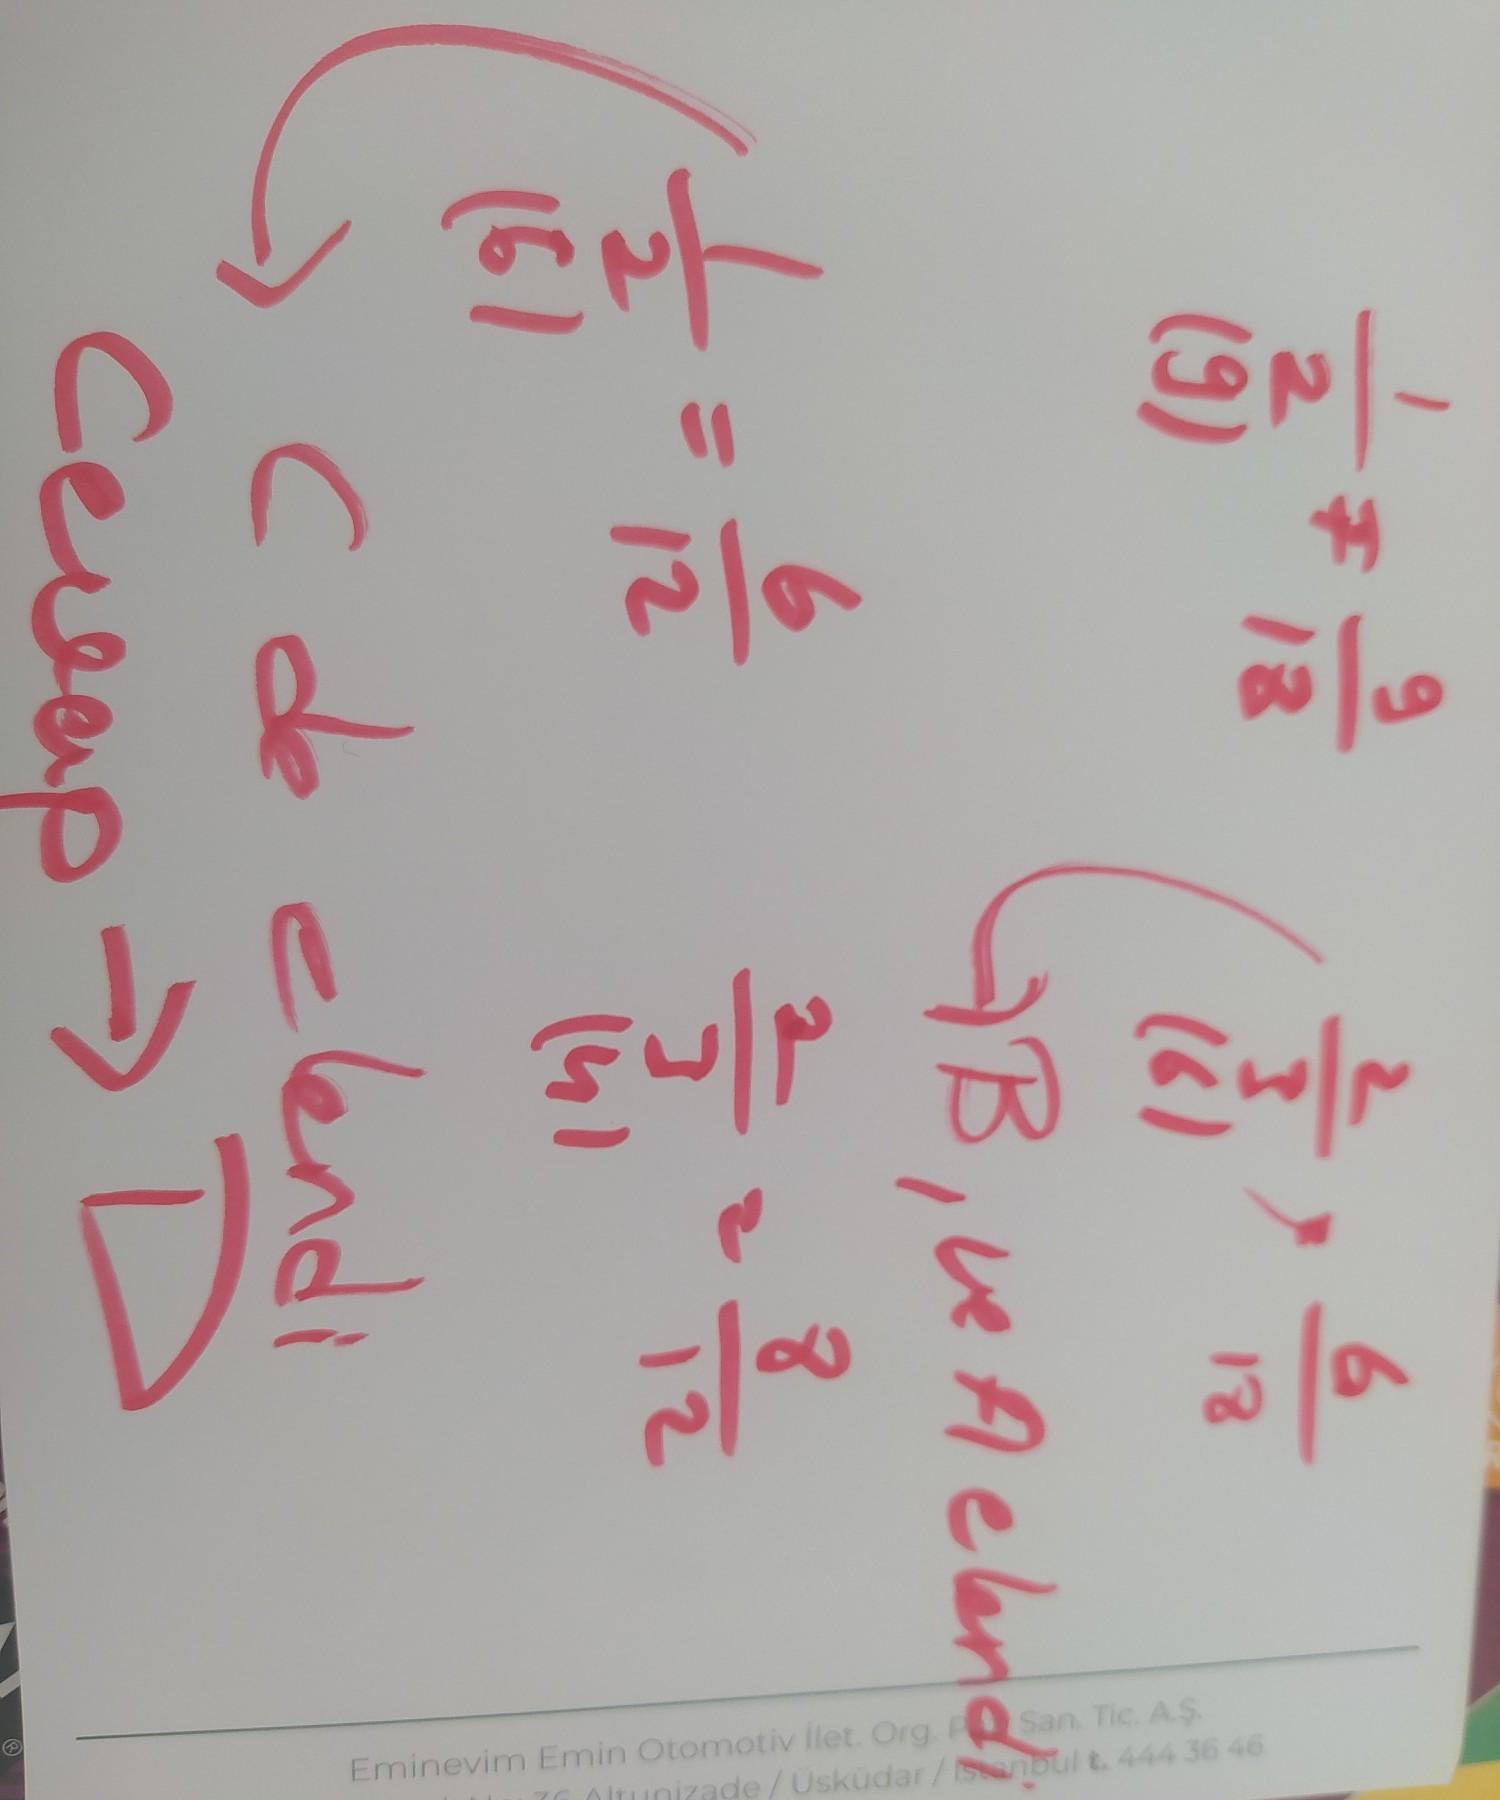 1/2 = 9/18 2/3 = 6/18
(9) (6)
B, ve A elendi
1/2 = 6/12 2/3 = 8/12
(6) (4)
C de elendi
Cevap → D
Eminevim Emin Otomotiv İlet. Org. San. Tic. A.Ş.
Altunizade / Üsküdar / İstanbul t. 444 36 46